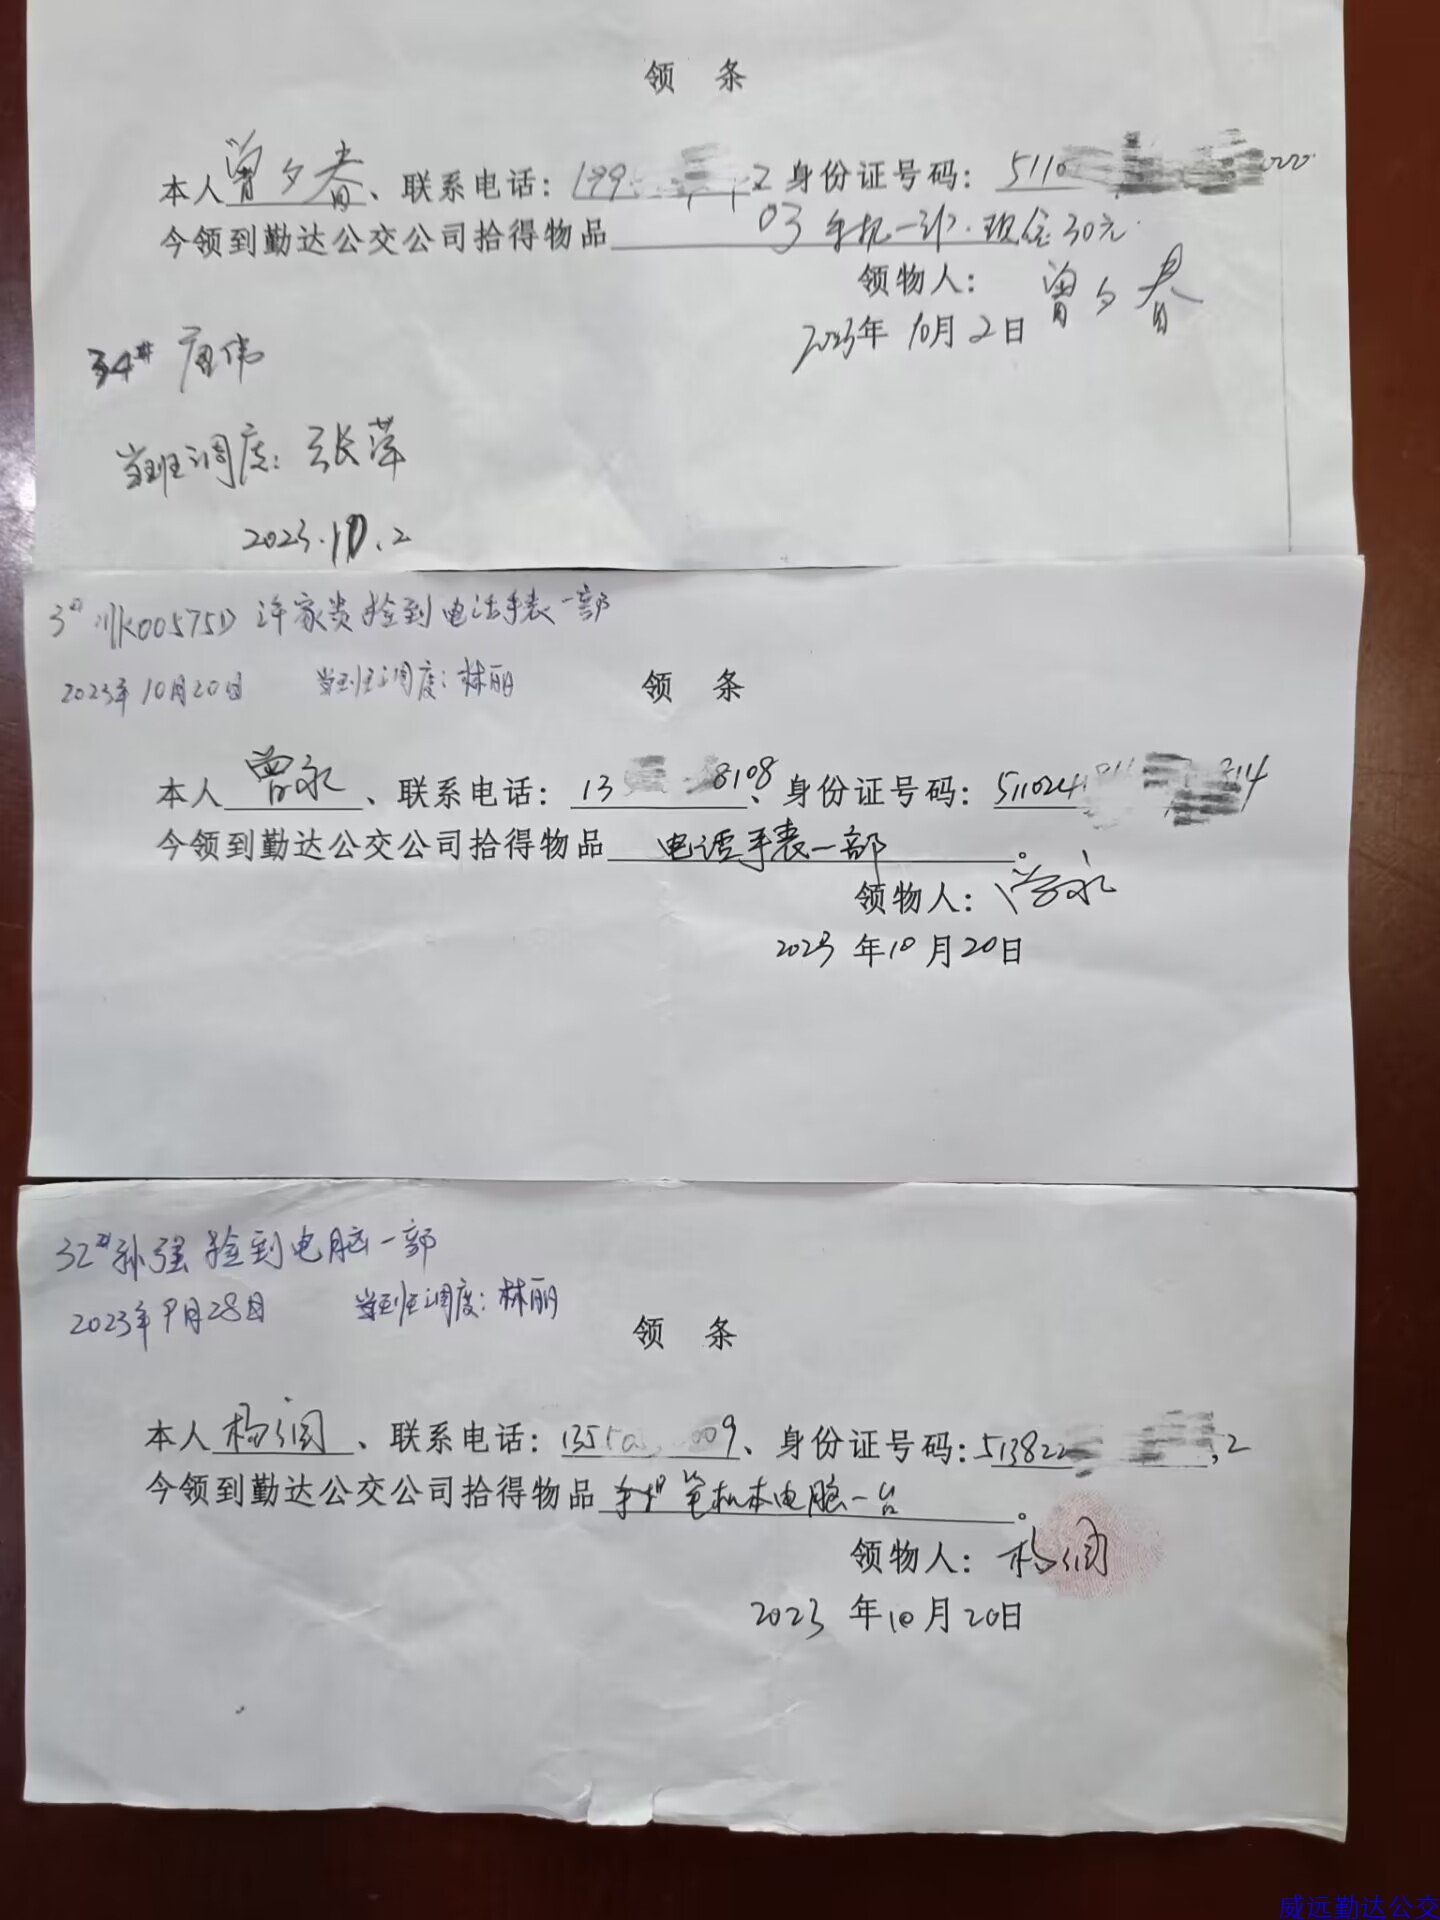 领 条
本人曾夕春、联系电话：199 2 身份证号码：5110
03 手机一部.现金30元.
今领到勤达公交公司拾得物品
领物人：曾夕春
2023年10月2日
34# 唐伟
当班调度：张萍
2023.10.2
3# 川K00575D 许家贵捡到电话手表一部
2023年10月20日 当班调度：林丽
领 条
本人曾永、联系电话：13 8108、身份证号码：511024 314
今领到勤达公交公司拾得物品电话手表一部。
领物人：曾永
2023年10月20日
32# 孙强捡到电脑一部
2023年9月28日 当班调度：林丽
领 条
本人杨润、联系电话：135 009、身份证号码：513822 2
今领到勤达公交公司拾得物品 笔机本电脑一台。
领物人：杨润
2023年10月20日
威远勤达公交